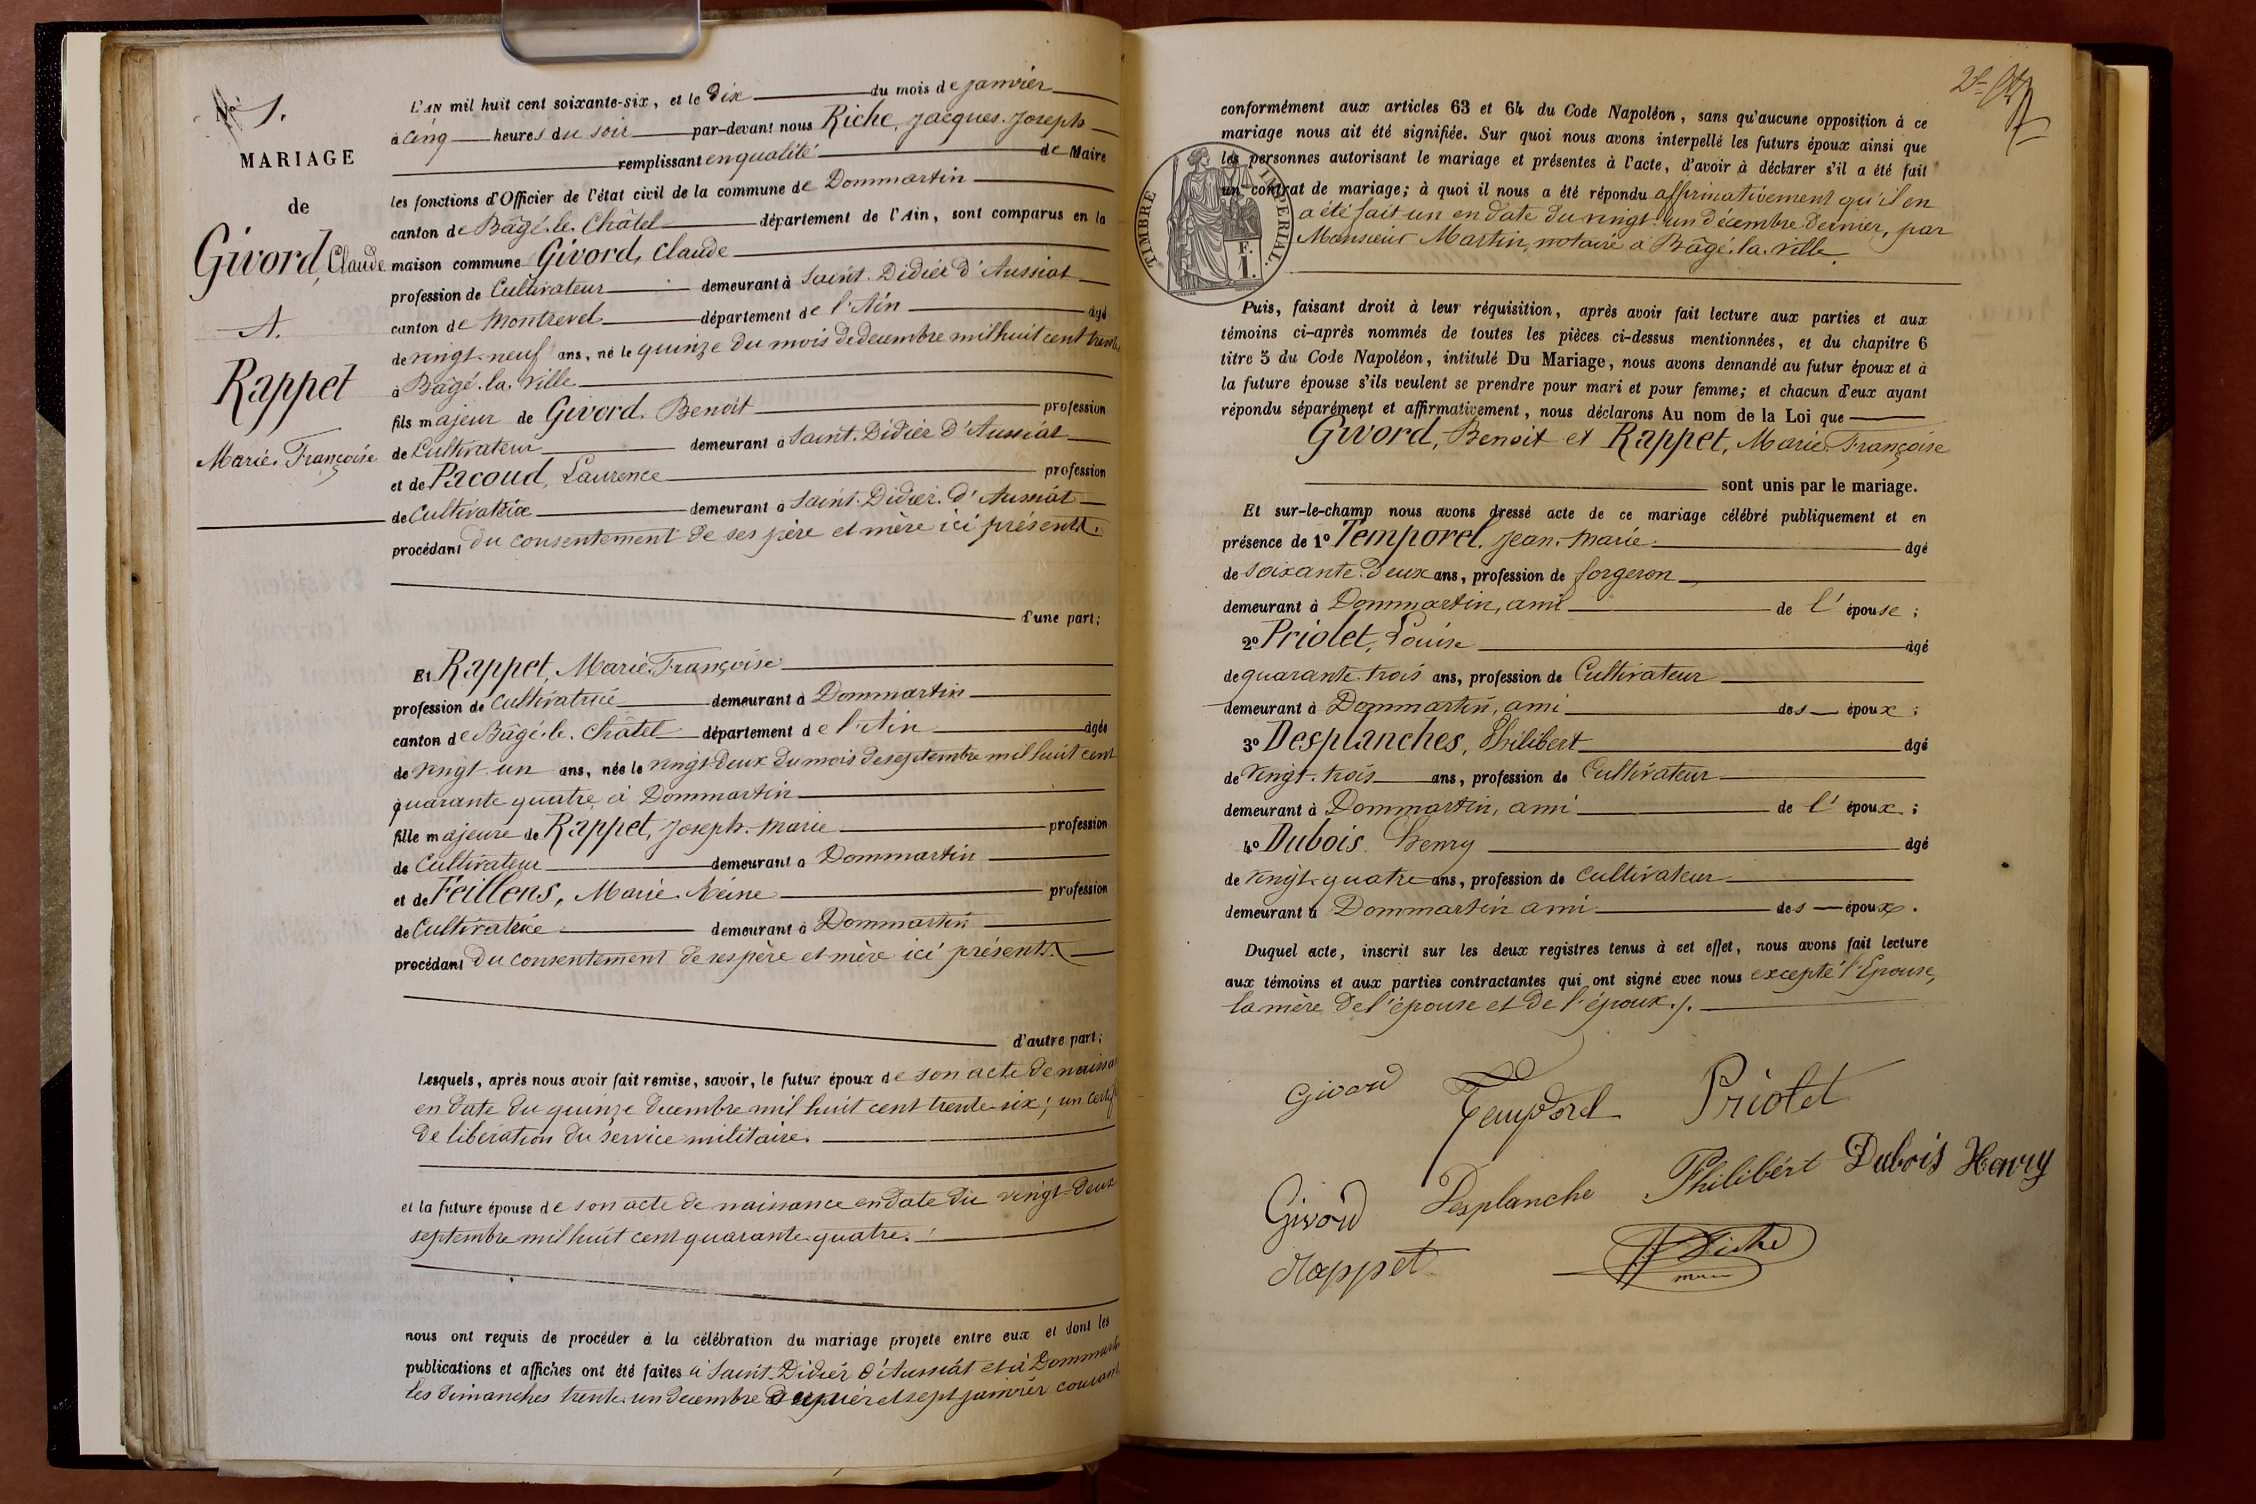 N° 1.
MARIAGE
de
Givord, Claude
A.
Rappet
Marie-Françoise
L'AN mil huit cent soixante-six, et le Dix du mois de janvier
à cinq heures du soir par-devant nous Riche, Jacques-Joseph
remplissant en qualité de Maire
les fonctions d'Officier de l'état civil de la commune de Dommartin
canton de Bâgé-le-Châtel département de l'Ain, sont comparus en la
maison commune Givord, Claude
profession de Cultivateur demeurant à Saint-Didier d'Aussiat
canton de Montrevel département de l'Ain âgé
de vingt-neuf ans, né le quinze du mois de décembre mil huit cent trente
à Bâgé-la-ville
fils majeur de Givord, Benoit profession
de Cultivateur demeurant à Saint-Didier d'Aussiat
et de Pacoud, Laurence profession
de Cultivatrice demeurant à Saint-Didier-d'Aussiat
procédant du consentement de ses père et mère ici présents.
d'une part;
Et Rappet, Marie-Françoise
profession de Cultivatrice demeurant à Dommartin
canton de Bâgé-le-Châtel département de l'Ain âgée
de vingt-un ans, née le vingt-deux du mois de septembre mil huit cent
quarante quatre à Dommartin
fille majeure de Rappet, Joseph-Marie profession
de Cultivateur demeurant à Dommartin
et de Feillens, Marie-Reine profession
de Cultivatrice demeurant à Dommartin
procédant du consentement de ses père et mère ici présents.
d'autre part;
Lesquels, après nous avoir fait remise, savoir, le futur époux de son acte de naissa
en date du quinze décembre mil huit cent trente-six; un certif
de libération du service militaire.
et la future épouse de son acte de naissance en date du vingt-deux
septembre mil huit cent quarante-quatre.
nous ont requis de procéder à la célébration du mariage projeté entre eux et dont les
publications et affiches ont été faites à Saint-Didier d'Aussiat et à Dommartin
les dimanches trente-un décembre dernier et sept janvier courant
conformément aux articles 63 et 64 du Code Napoléon, sans qu'aucune opposition à ce
mariage nous ait été signifiée. Sur quoi nous avons interpellé les futurs époux ainsi que
les personnes autorisant le mariage et présentes à l'acte, d'avoir à déclarer s'il a été fait
un contrat de mariage; à quoi il nous a été répondu affirmativement qu'il en
a été fait un en date du vingt-un décembre dernier, par
Monsieur Martin, notaire à Bâgé-la-ville.
TIMBRE IMPERIAL.
F.
1.
Puis, faisant droit à leur réquisition, après avoir fait lecture aux parties et aux
témoins ci-après nommés de toutes les pièces ci-dessus mentionnées, et du chapitre 6
titre 5 du Code Napoléon, intitulé Du Mariage, nous avons demandé au futur époux et à
la future épouse s'ils veulent se prendre pour mari et pour femme; et chacun d'eux ayant
répondu séparément et affirmativement, nous déclarons Au nom de la Loi que
Givord, Benoit et Rappet, Marie-Françoise
sont unis par le mariage.
Et sur-le-champ nous avons dressé acte de ce mariage célébré publiquement et en
présence de 1° Temporel, Jean-Marie âgé
de soixante-deux ans, profession de forgeron
demeurant à Dommartin, ami de l'épouse;
2° Priolet, Louise âgé
de quarante-trois ans, profession de Cultivateur
demeurant à Dommartin, ami des époux;
3° Desplanches, Philibert âgé
de vingt-trois ans, profession de Cultivateur
demeurant à Dommartin, ami de l'époux;
4° Dubois Henry âgé
de vingt-quatre ans, profession de cultivateur
demeurant à Dommartin ami des époux.
Duquel acte, inscrit sur les deux registres tenus à cet effet, nous avons fait lecture
aux témoins et aux parties contractantes qui ont signé avec nous excepté l'Epouse,
la mère de l'épouse et de l'époux./.
Givord Temporel Priolet
Givord Desplanche Philibért Dubois Henry
Rappet Riche
maire